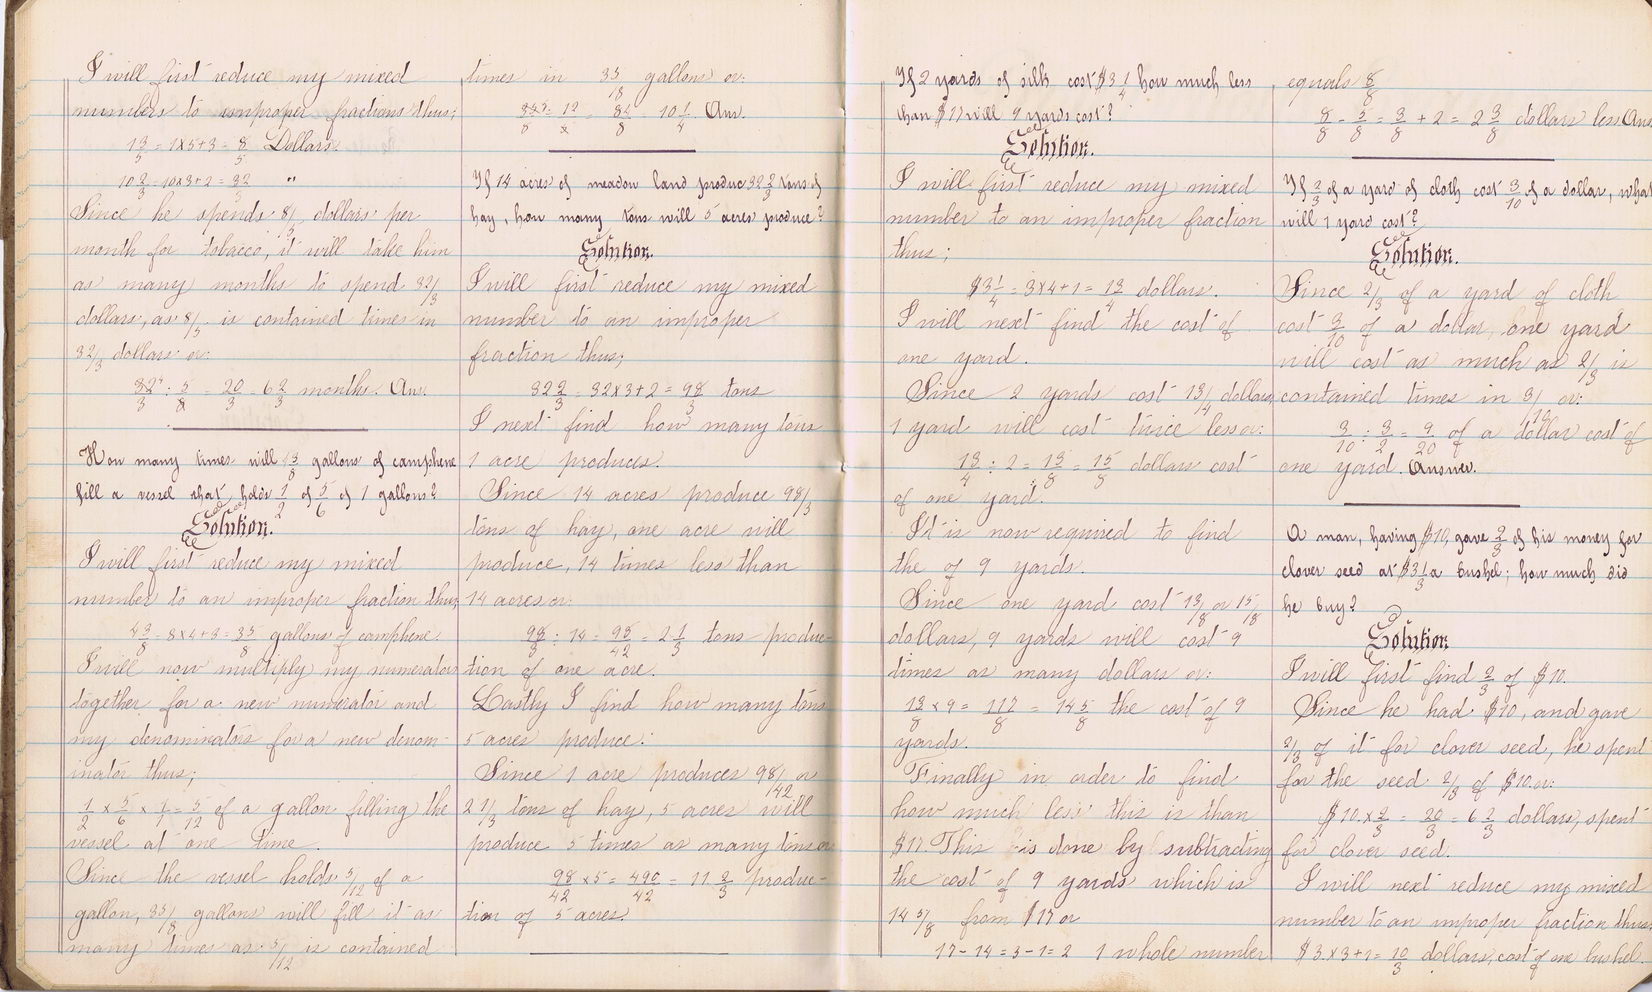 I will first reduce my mixed
numbers to improper fractions thus;
1 3/5 = 1x5+3 = 8/5 Dollars.
10 2/3 = 10x3+2 = 32/3 "
Since he spends 8/5 dollars per
month for tobacco, it will take him
as many months to spend 32/3
dollars, as 8/5 is contained times in
32/3 dollars or:
32/3 : 5/8 = 20/3 = 6 2/3 months. Ans.
How many times will 4 3/8 gallons of camphene
fill a vessel that holds 1/2 of 5/6 of 1 gallons?
Solution.
I will first reduce my mixed
number to an improper fraction thus;
4 3/8 = 8x4+3 = 35/8 gallons of camphene.
I will now multiply my numerators
together for a new numerator and
my denominators for a new denom-
inator thus;
1/2 x 5/6 x 1/1 = 5/12 of a gallon filling the
vessel at one time.
Since the vessel holds 5/12 of a
gallon, 35/8 gallons will fill it as
many times as 5/12 is contained
times in 35/18 gallons or:
835/8 : 12/ = 84/8 10 1/4 Ans.
If 14 acres of meadow land produc 32 2/3 tons of
hay, how many tons will 5 acres produce?
Solution.
I will first reduce my mixed
number to an improper
fraction thus;
32 2/3 = 32x3+2 = 98/3 tons
I next find how many tons
1 acre produces.
Since 14 acres produce 98/3
tons of hay, one acre will
produce, 14 times less than
14 acres or:
98/3 : 14 = 98/42 = 2 1/3 tons produc-
tion of one acre.
Lastly I find how many tons
5 acres produce:
Since 1 acre produces 98/42 or
2 1/3 tons of hay, 5 acres will
produce 5 times as many tons or
98/42 x5 = 490/42 = 11 2/3 produc-
tion of 5 acres.
If 2 yards of silk cost $3 1/4 how much less
than $17 will 9 yards cost?
Solution.
I will first reduce my mixed
number to an improper fraction
thus;
$3 1/4 = 3x4+1 = 13/4 dollars.
I will next find the cost of
one yard.
Since 2 yards cost 13/4 dollars,
1 yard will cost twice less or:
13/4 : 2 = 13/8 = 15/8 dollars cost
of one yard.
It is now required to find
the of 9 yards.
Since one yard cost 13/8 or 15/8
dollars, 9 yards will cost 9
times as many dollars or:
13/8 x 9 = 117/8 = 14 5/8 the cost of 9
yards.
Finally in order to find
how much less this is than
$17. This is done by subtracting
the cost of 9 yards which is
14 5/8 from $17 or
17-14 = 3-1 = 2 1 whole number
equals 8/8
8/8 - 5/8 = 3/8 + 2 = 2 3/8 dollars less Ans
If 2/3 of a yard of cloth cost 3/10 of a dollar, what
will 1 yard cost?
Solution.
Since 2/3 of a yard of cloth
cost 3/10 of a dollar, one yard
will cost as much as 2/3 is
contained times in 3/10 or:
3/10 : 3/2 = 9/20 of a dollar cost of
one yard. Answer.
A man, having $10, gave 2/3 of his money for
clover seed at $3 1/3 a bushel; how much did
he buy?
Solution
I will first find 2/3 of $10.
Since he had $10, and gave
2/3 of it for clover seed, he spent
for the seed 2/3 of $10. or:
$10. x 2/3 = 20/3 = 6 2/3 dollars, spent
for clover seed.
I will next reduce my mixed
number to an improper fraction thus;
$3. x3+1 = 10/3 dollars, cost of one bushel.